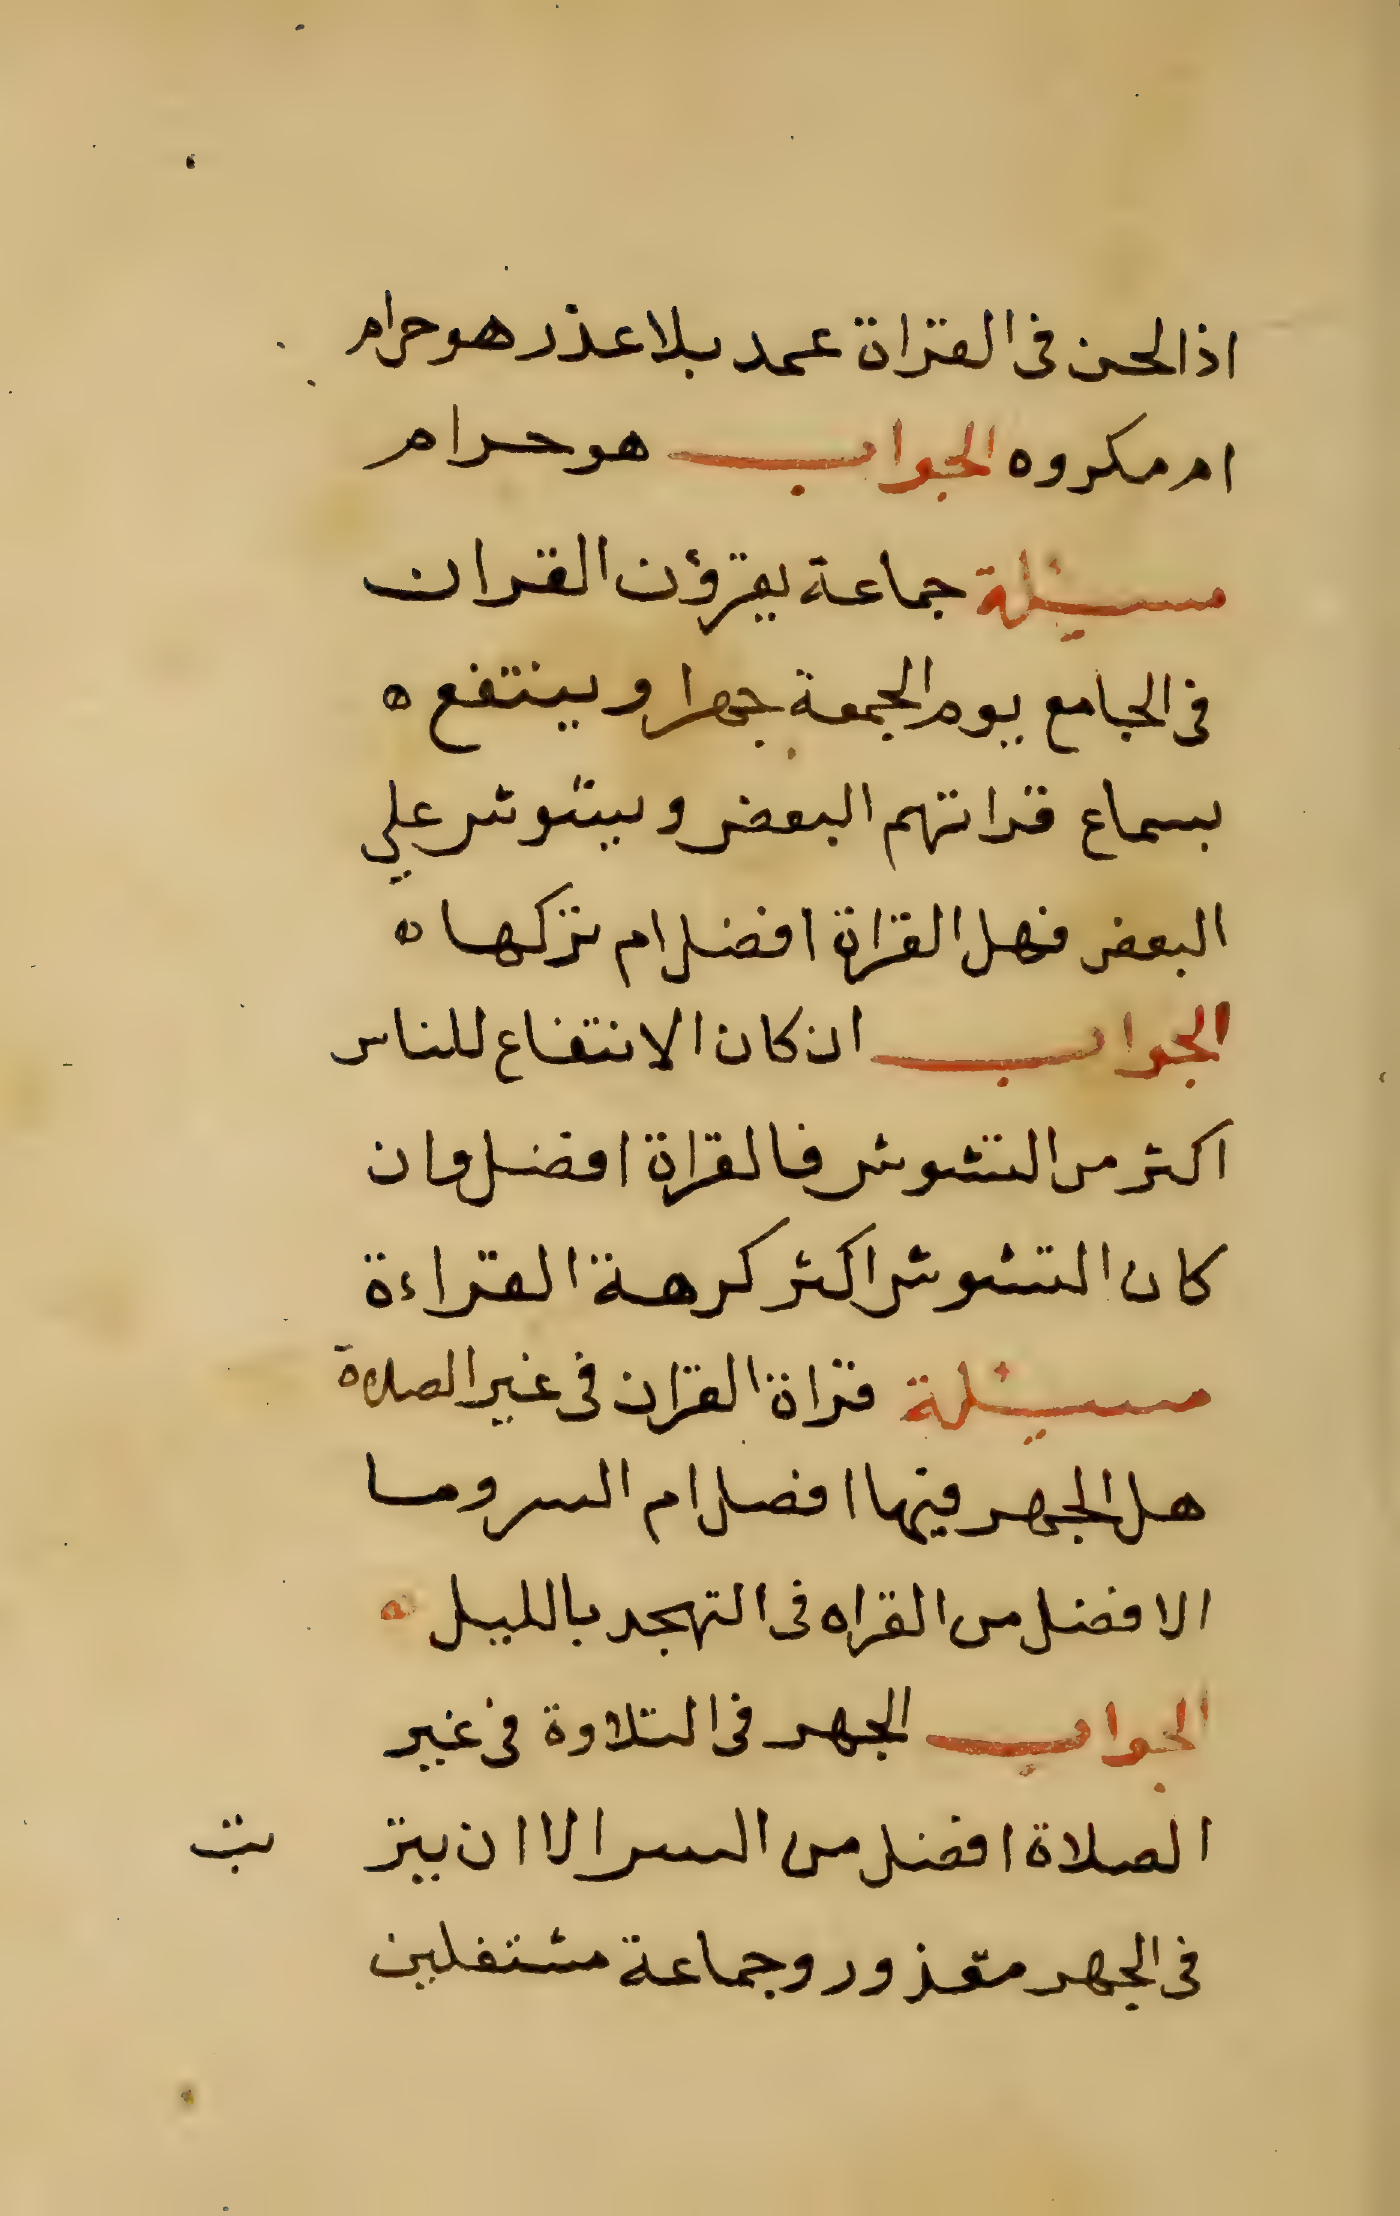 اذا لحن فى القراة عمد بلا عذر هو حرام
ام مكروه الجواب هو حرام
مسئلة جماعة يقرؤن القران
فى الجامع يوم الجمعة جهرا وينتفع ه
بسماع قراتهم البعض ويشوش علي
البعض فهل القراة افضل ام تركها ه
الجواب ان كان الانتفاع للناس
اكثر من التشوش فالقراة افضل وان
كان التشوش اكثر كرهة القراءة
مسئلة قراة القران فى غير الصلاة
هل الجهر فيها افضل ام السر وما
الافضل من القراه فى التهجد بالليل ه
الجواب الجهر فى التلاوة فى غير
الصلاة افضل من السر الا ان يتر تب
فى الجهر متعذور وجماعة مشتغلين